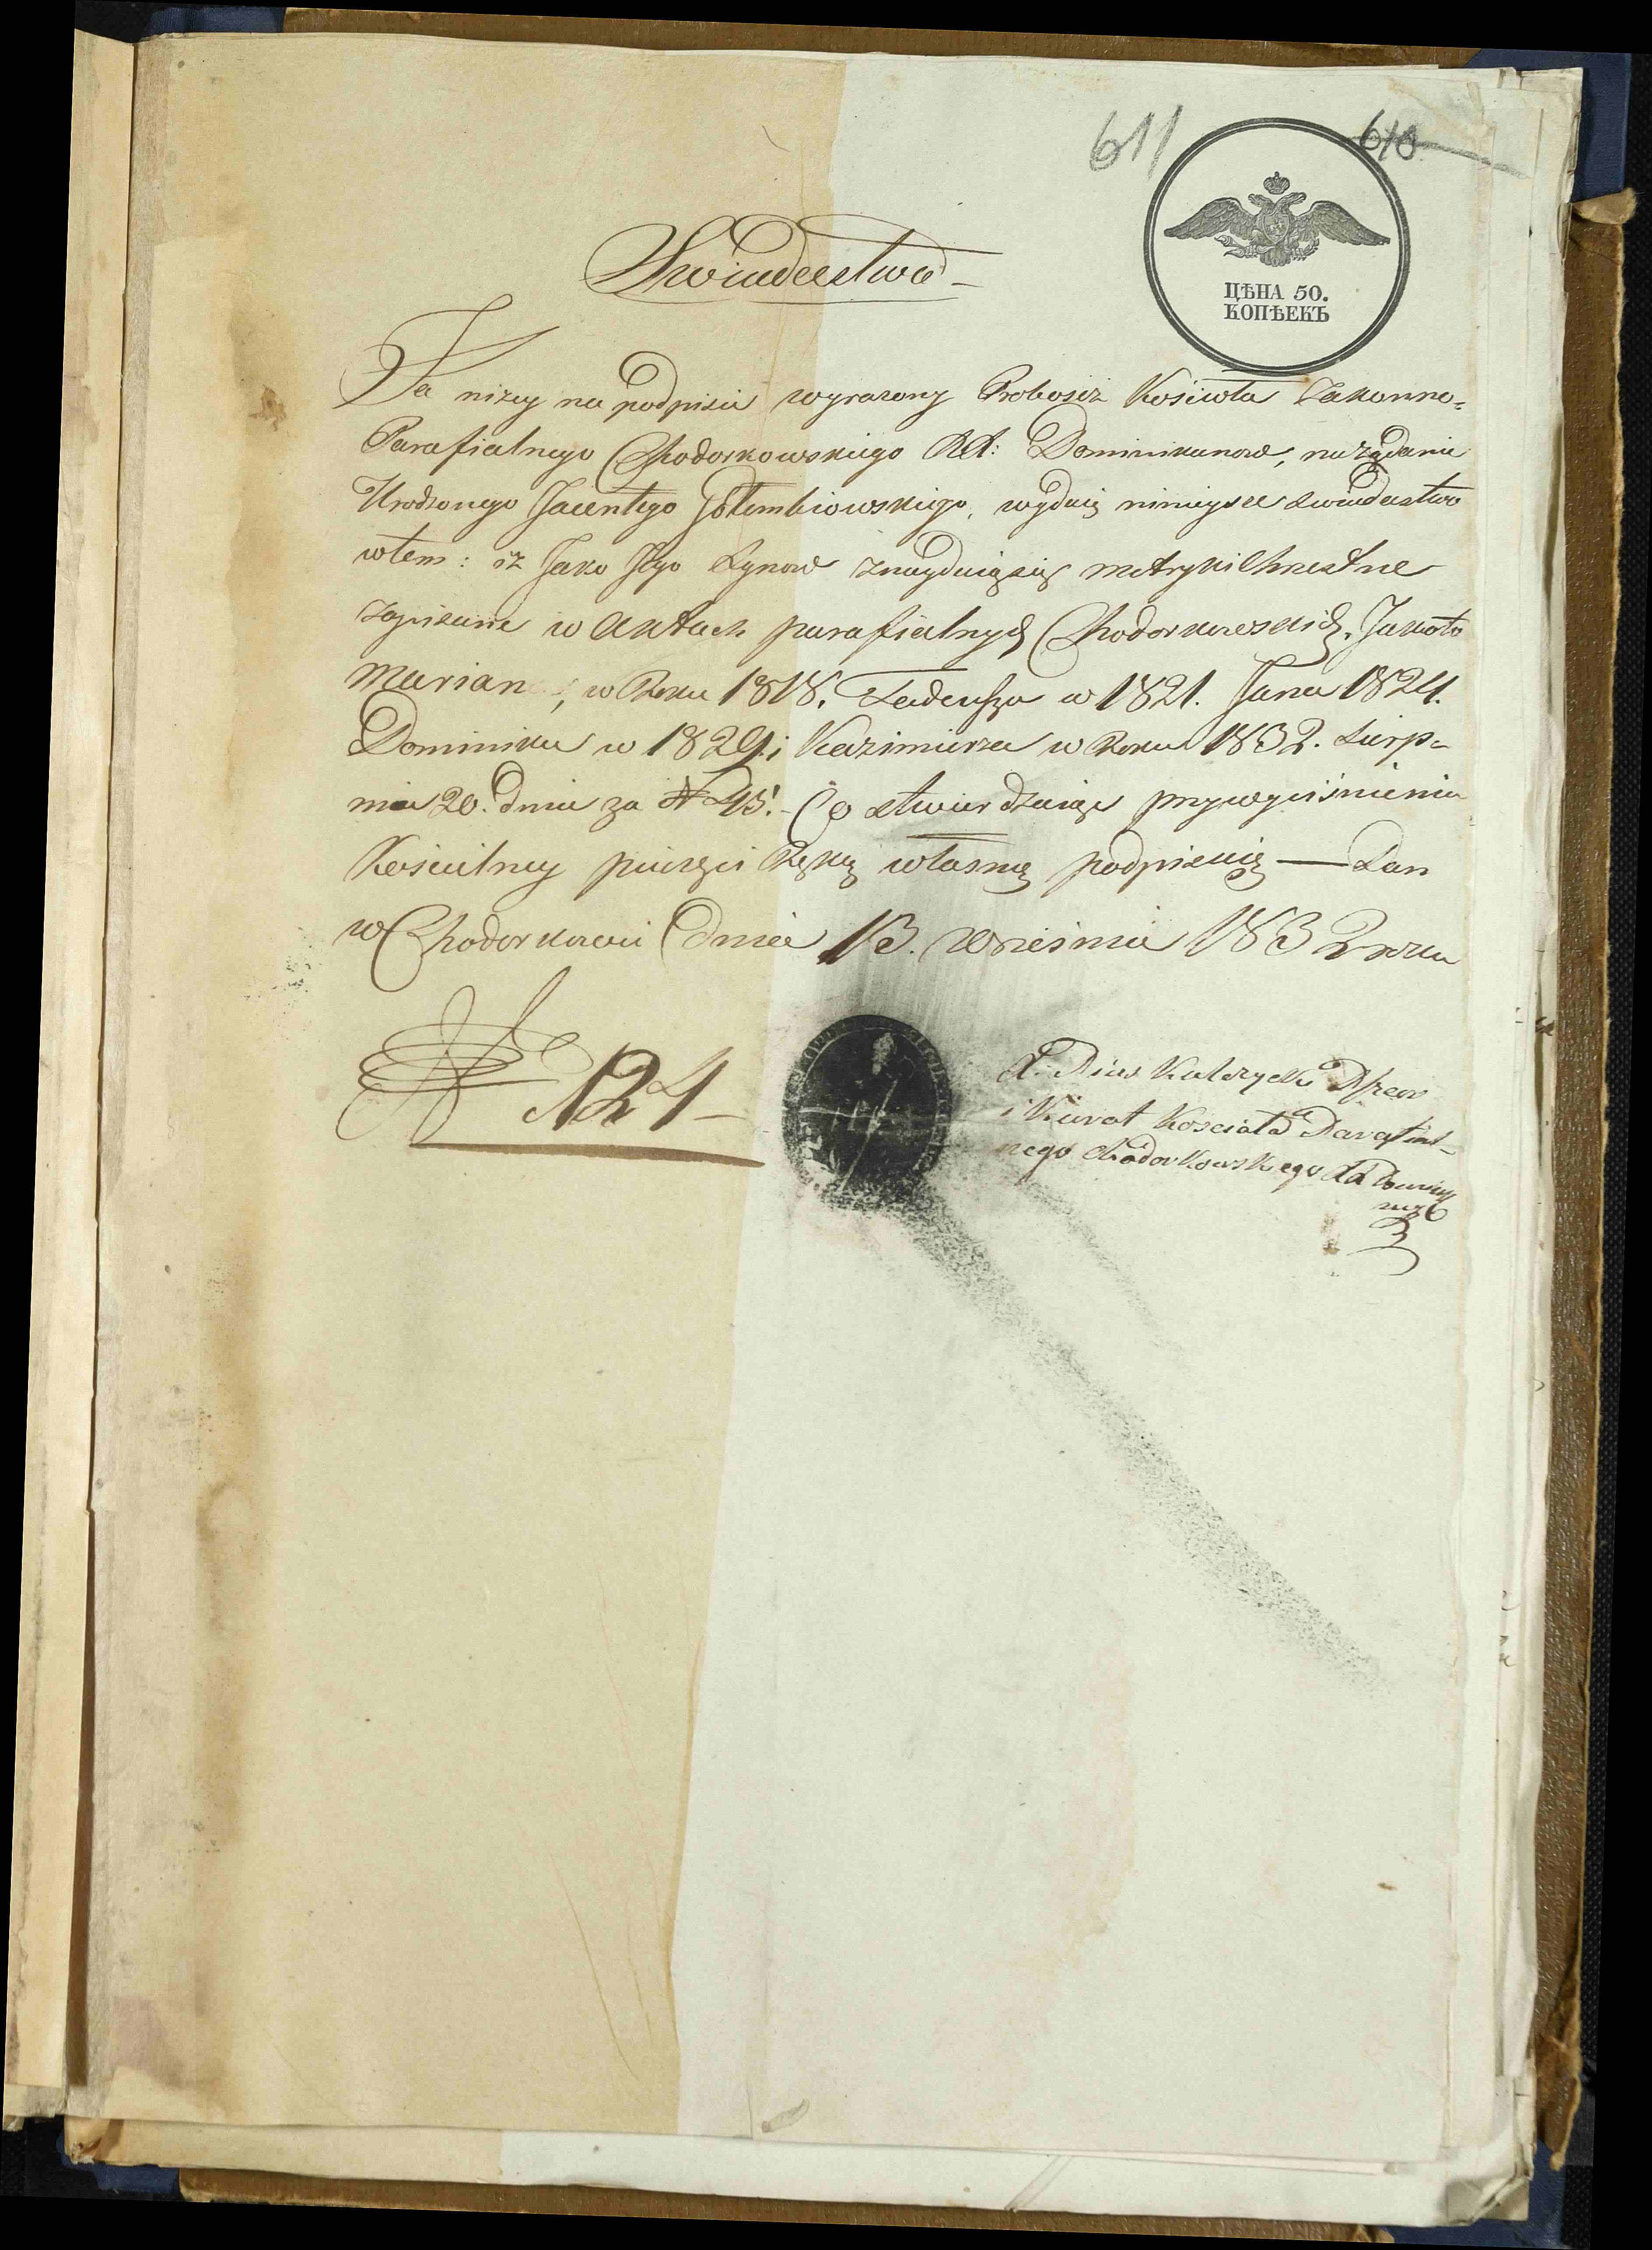 611 610
ЦѢНА 50.
КОПѢЕКЪ
Swiadectwo
Ja niżey na podpisie wyrażony Proboszcz Kościoła Zakonno-
Parafialnego Chodorkowskiego XX: Dominikanow, na żądanie
Urodzonego Jacentego Gołembiowskiego, wydaię ninieysze Swiadectwo
w tem: iż Jako Jego Synow znayduią się metryki Chrzestne
zapisane w Aktach parafialnych Chodorkowskich, Jako to
Mariana, w Roku 1818. Tadeusza w 1821. Jana 1824.
Dominika w 1829. i Kazimierza w Roku 1832. Sierp-
nia 20. dnia za N 95. Co stwierdzaiąc przy wyciśnieniu
Kościelney pieczęci Ręką własną podpisuię — Dan
w Chodorkowie dnia 13. Wrzesnia 1832 roku
N 124
X. Pius Przeor
i Kurat Kosciała Parafial-
nego Chodorkowskego XX Domini